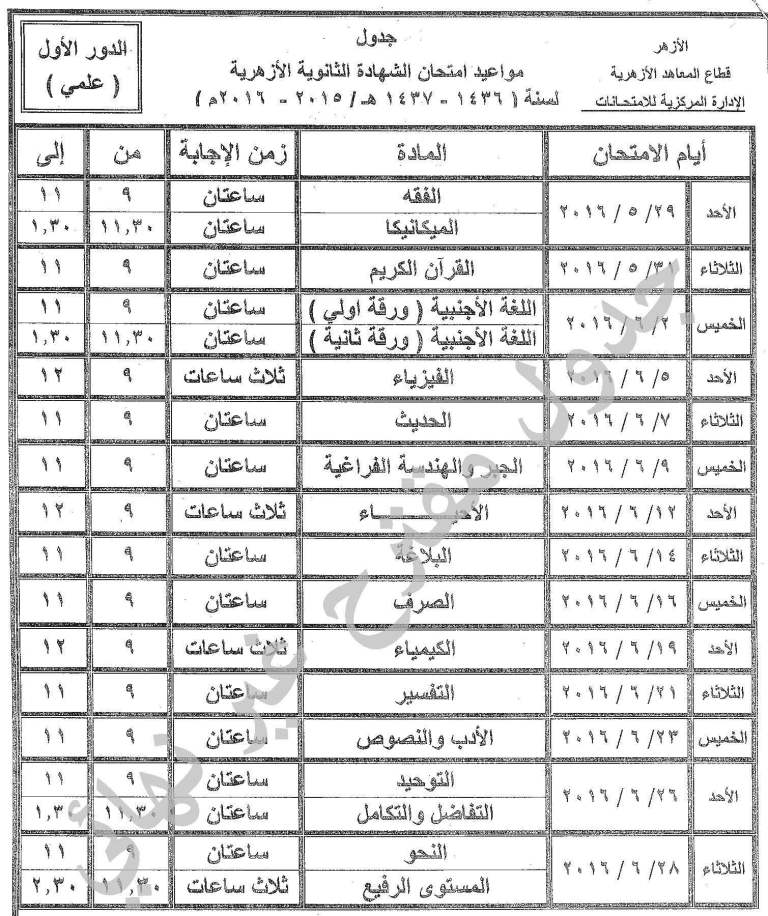 الأزهر
قطاع المعاهد الأزهرية
الإدارة المركزية للامتحانات
جدول
مواعيد امتحان الشهادة الثانوية الأزهرية
لسنة ( ١٤٣٦ - ١٤٣٧ هـ/ ٢٠١٥ - ٢٠١٦م )
الدور الأول
( علمي )
أيام الامتحان المادة زمن الإجابة من إلى
الأحد ٢٩/ ٥ / ٢٠١٦ الفقه ساعتان ٩ ١١
الميكانيكا ساعتان ١١,٣٠ ١,٣٠
الثلاثاء ٣١/ ٥ / ٢٠١٦ القرآن الكريم ساعتان ٩ ١١
الخميس ٢/ ٦ / ٢٠١٦ اللغة الأجنبية ( ورقة اولي ) ساعتان ٩ ١١
اللغة الأجنبية ( ورقة ثانية ) ساعتان ١١,٣٠ ١,٣٠
الأحد ٥/ ٦ / ٢٠١٦ الفيزياء ثلاث ساعات ٩ ١٢
الثلاثاء ٧/ ٦ / ٢٠١٦ الحديث ساعتان ٩ ١١
الخميس ٩/ ٦ / ٢٠١٦ الجبر والهندسة الفراغية ساعتان ٩ ١١
الأحد ١٢/ ٦ / ٢٠١٦ الأحيـــــــاء ثلاث ساعات ٩ ١٢
الثلاثاء ١٤/ ٦ / ٢٠١٦ البلاغة ساعتان ٩ ١١
الخميس ١٦/ ٦ / ٢٠١٦ الصرف ساعتان ٩ ١١
الأحد ١٩/ ٦ / ٢٠١٦ الكيمياء ثلاث ساعات ٩ ١٢
الثلاثاء ٢١/ ٦ / ٢٠١٦ التفسير ساعتان ٩ ١١
الخميس ٢٣/ ٦ / ٢٠١٦ الأدب والنصوص ساعتان ٩ ١١
الأحد ٢٦/ ٦ / ٢٠١٦ التوحيد ساعتان ٩ ١١
التفاضل والتكامل ساعتان ١١,٣٠ ١,٣٠
الثلاثاء ٢٨/ ٦ / ٢٠١٦ النحو ساعتان ٩ ١١
المستوى الرفيع ثلاث ساعات ١١,٣٠ ٢,٣٠
جدول مقترح غير نهائي